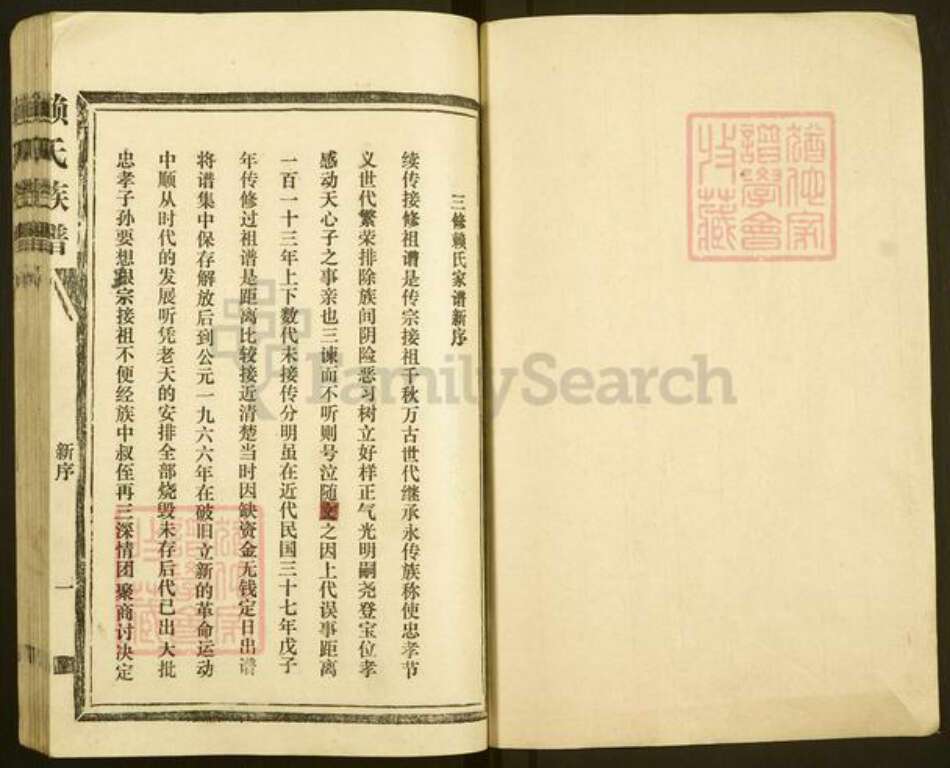 三修赖氏家谱新序
续传接修祖谱是传宗接祖千秋万古世代继承永传族称使忠孝节
义世代繁荣排除族间阴险恶习树立好样正气光明嗣尧登宝位孝
感动天心子之事亲也三谏而不听则号泣随之因上代误事距离
一百一十三年上下数代未接传分明虽在近代民国三十七年戊子
年传修过祖谱是距离比较接近清楚当时因缺资金无钱定日出谱
将谱集中保存解放后到公元一九六六年在破旧立新的革命运动
中顺从时代的发展听凭老天的安排全部烧毁未存后代已出大批
忠孝子孙要想根宗接祖不便经族中叔侄再三深情团聚商讨决定
赖氏族谱
新序
一
猶他家譜學會收藏
猶他家譜學會收藏
FamilySearch